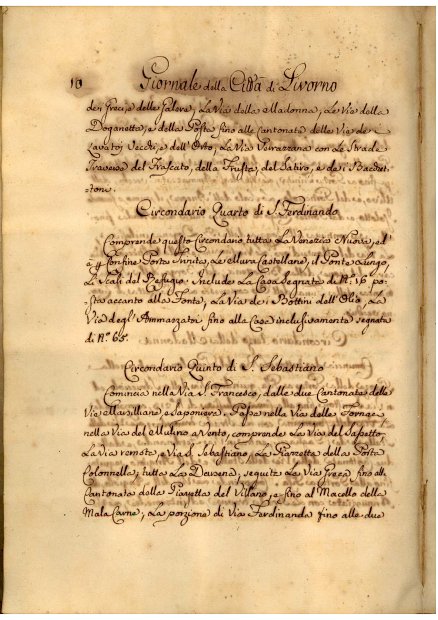 10 Giornale della Città di Livorno
dei Greci, e delle Galere; La Via della Madonna, Le Vie della
Doganetta, e della Posta fino alle Cantonate delle Vie de
Lavatoj Vecchi, e dell'Orto, La Via Verrazzana con Le Strade
Traverse del Frascato, della Frusta, del Satiro, e de i Bacchet-
toni.
Circondario Quarto di S. Ferdinando
Comprende questo Circondario tutta La Venezia Nuova, ed
à p Confine Porta Le Mura Castellane, il Ponte a
Li Scali del Refugio. Include La Casa Segnata di N.º 16 po-
sta accanto alla Fonte, La Via de i Bottini dell'Olio, La
Via degl'Ammazzatoi fino alla Casa inclusivamente segnata
di N.º 65.
Circondario Quinto di S. Sebastiano
Comincia nella Via S. Francesco, dalle due Cantonate delle
Vie Marsiliane e Saponiera. Passa nella Via delle Fornac,
nella Via del Mulino a Vento, comprende La Via del
La Via remota, e Via S. Sebastiano, Le Piazzetta della Porta
Colonnella, tutta La Darsena, seguita La Via Greca fino alla
Cantonata della Piazzetta del Villano, e fino al Macello della
Mala Carne; La porzione di Via Ferdinanda fino alle due